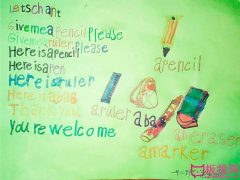 Let's chant
Give me a pencil Please
Give me a ruler, Please
Here is a pen
Here is a pen
Here is a ruler
Here is a bag
Thank you
You're welcome
a pencil
a ruler
a bag
an eraser
a marker